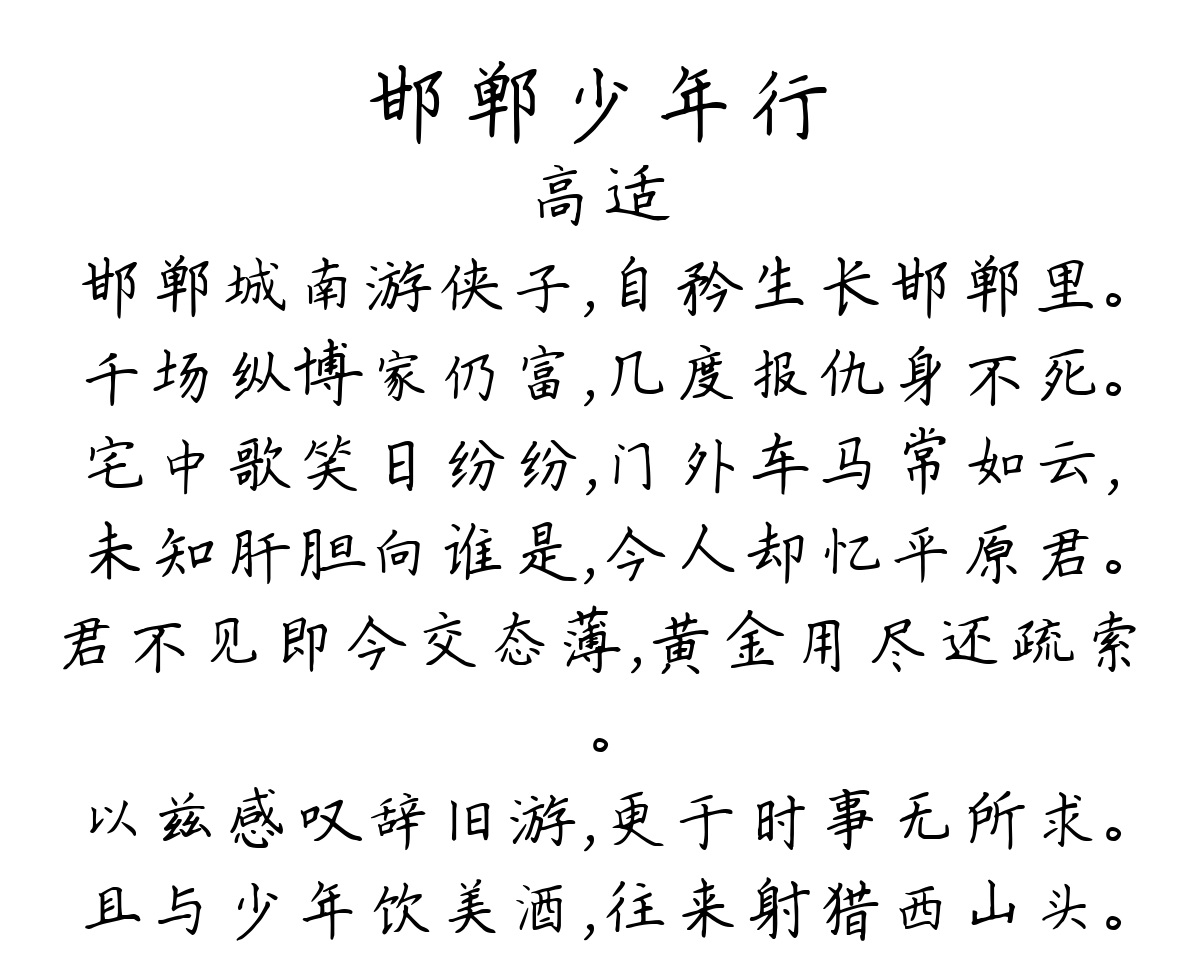 邯郸少年行
高适
邯郸城南游侠子,自矜生长邯郸里。
千场纵博家仍富,几度报仇身不死。
宅中歌笑日纷纷,门外车马常如云,
未知肝胆向谁是,今人却忆平原君。
君不见即今交态薄,黄金用尽还疏索
。
以兹感叹辞旧游,更于时事无所求。
且与少年饮美酒,往来射猎西山头。